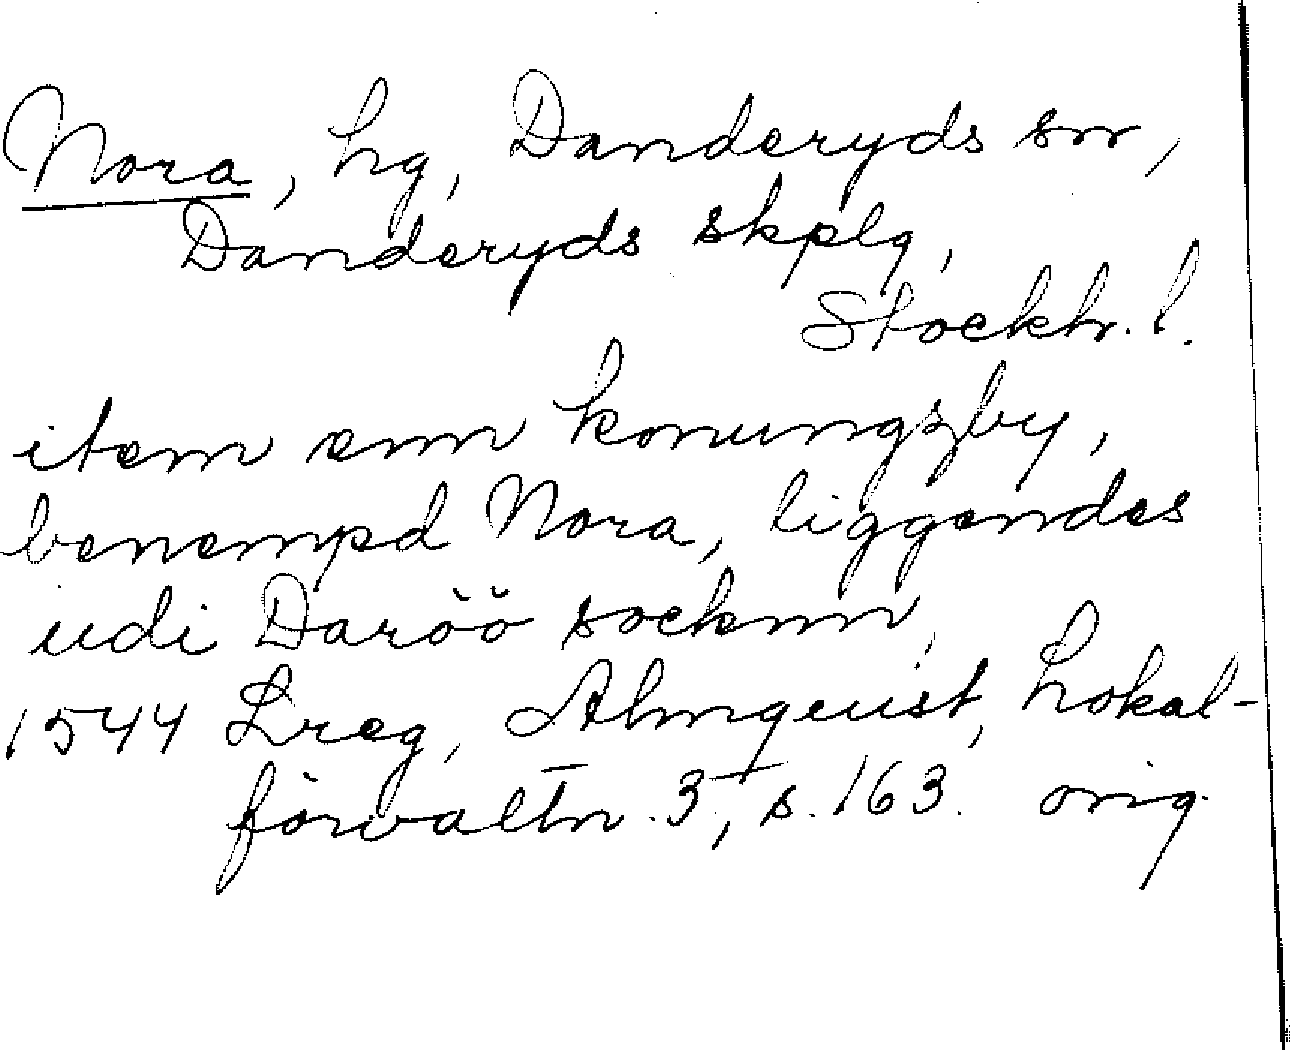 Nora, hg, Danderyds sn,
Danderyds skplg,
Stockh. l.
item enn konungzby,
benempd Nora, liggendes
udi Daröö socknn,
1544 Lreg, Almquist, Lokal-
förvaltn. 3, s. 163. orig.